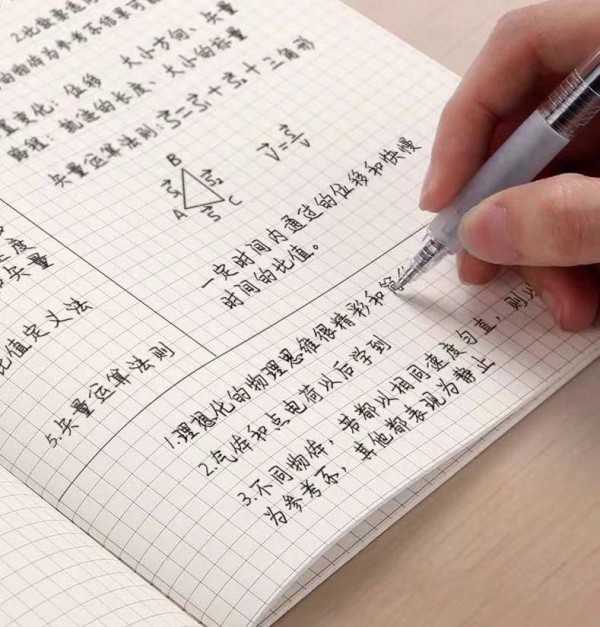 2.
的物体为参考系结果可能
置变化：位移　大小方向、矢量
路程：轨迹的长度、大小的标量
矢量运算法则：S=S₁+S₂+三角形
B
S₁ S₂
A S C
V=S/v
一定时间内通过的位移和快慢
时间的比值。
度
矢量
比值定义法
5.矢量运算法则
1.理想化的物理思维很精彩和简
2.气体和点电荷以后学到
3.不同物体，若都以相同速度匀直，则以
为参考系，其他都表现为静止